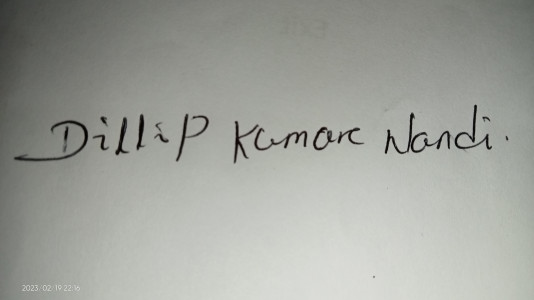 Dillip Kumarc Nandi.
2023/02/19 22:16